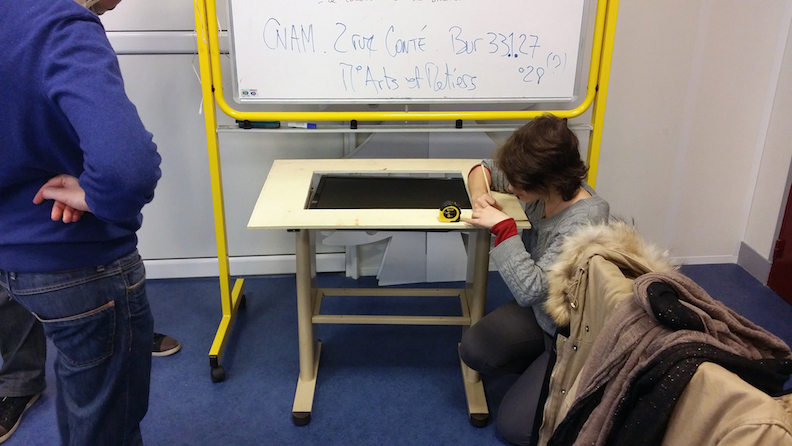 CNAM. 2 rue Conté Bur 331.27
°28 (?)
M° Arts et Metiers